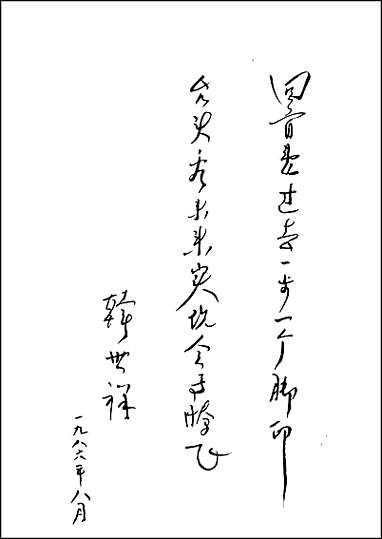 回首过去一步一个脚印
头看未来实现全腾飞
韩世祥
一九八六年八月